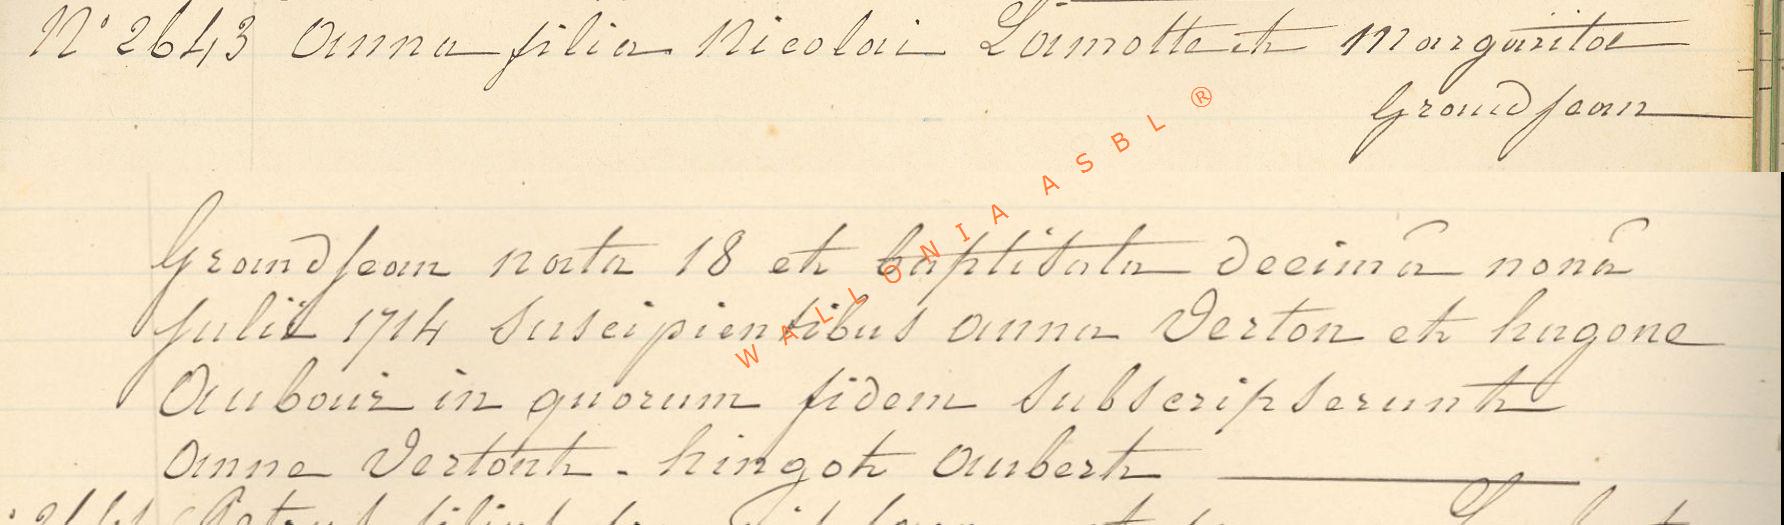 N° 2643 Anna filia Nicolai Lamotte et Margaritae
Grandjean
Grandjean nata 18 et baptisata decimâ nonâ
Julii 1714 suscipientibus anna Verton et hugone
Aubouir in quorum fidem subscripserunt
anne Vertont - hingot Aubert
WALLONIA ASBL ®